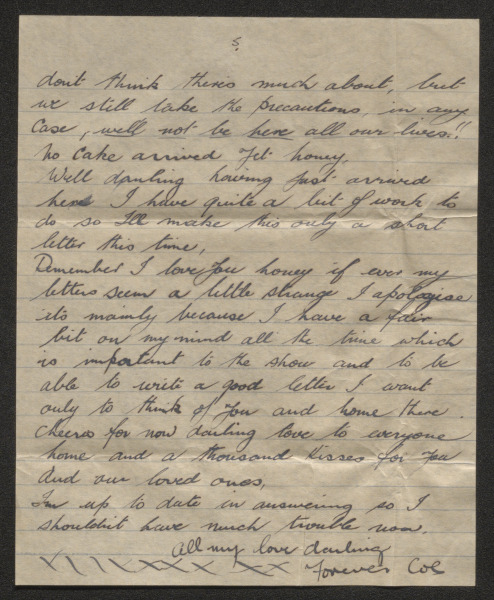 5.
don't think there's much about, but
we still take the precautions, in any
case, we'll not be here all our lives!!
No cake arrived yet honey.
Well darling having just arrived
here I have quite a bit of work to
do so I'll make this only a short
letter this time,
Remember I love you honey if ever my
letters seem a little strange I apologise
its mainly because I have a fair
bit on my mind all the time which
is important to the show and to be
able to write a good letter I want
only to think of you and home there.
Cheerio for now darling love to everyone
home and a thousand kisses for you
And our loved ones,
I'm up to date in answering so I
shouldn't have much trouble now.
All my love darling
Forever Col